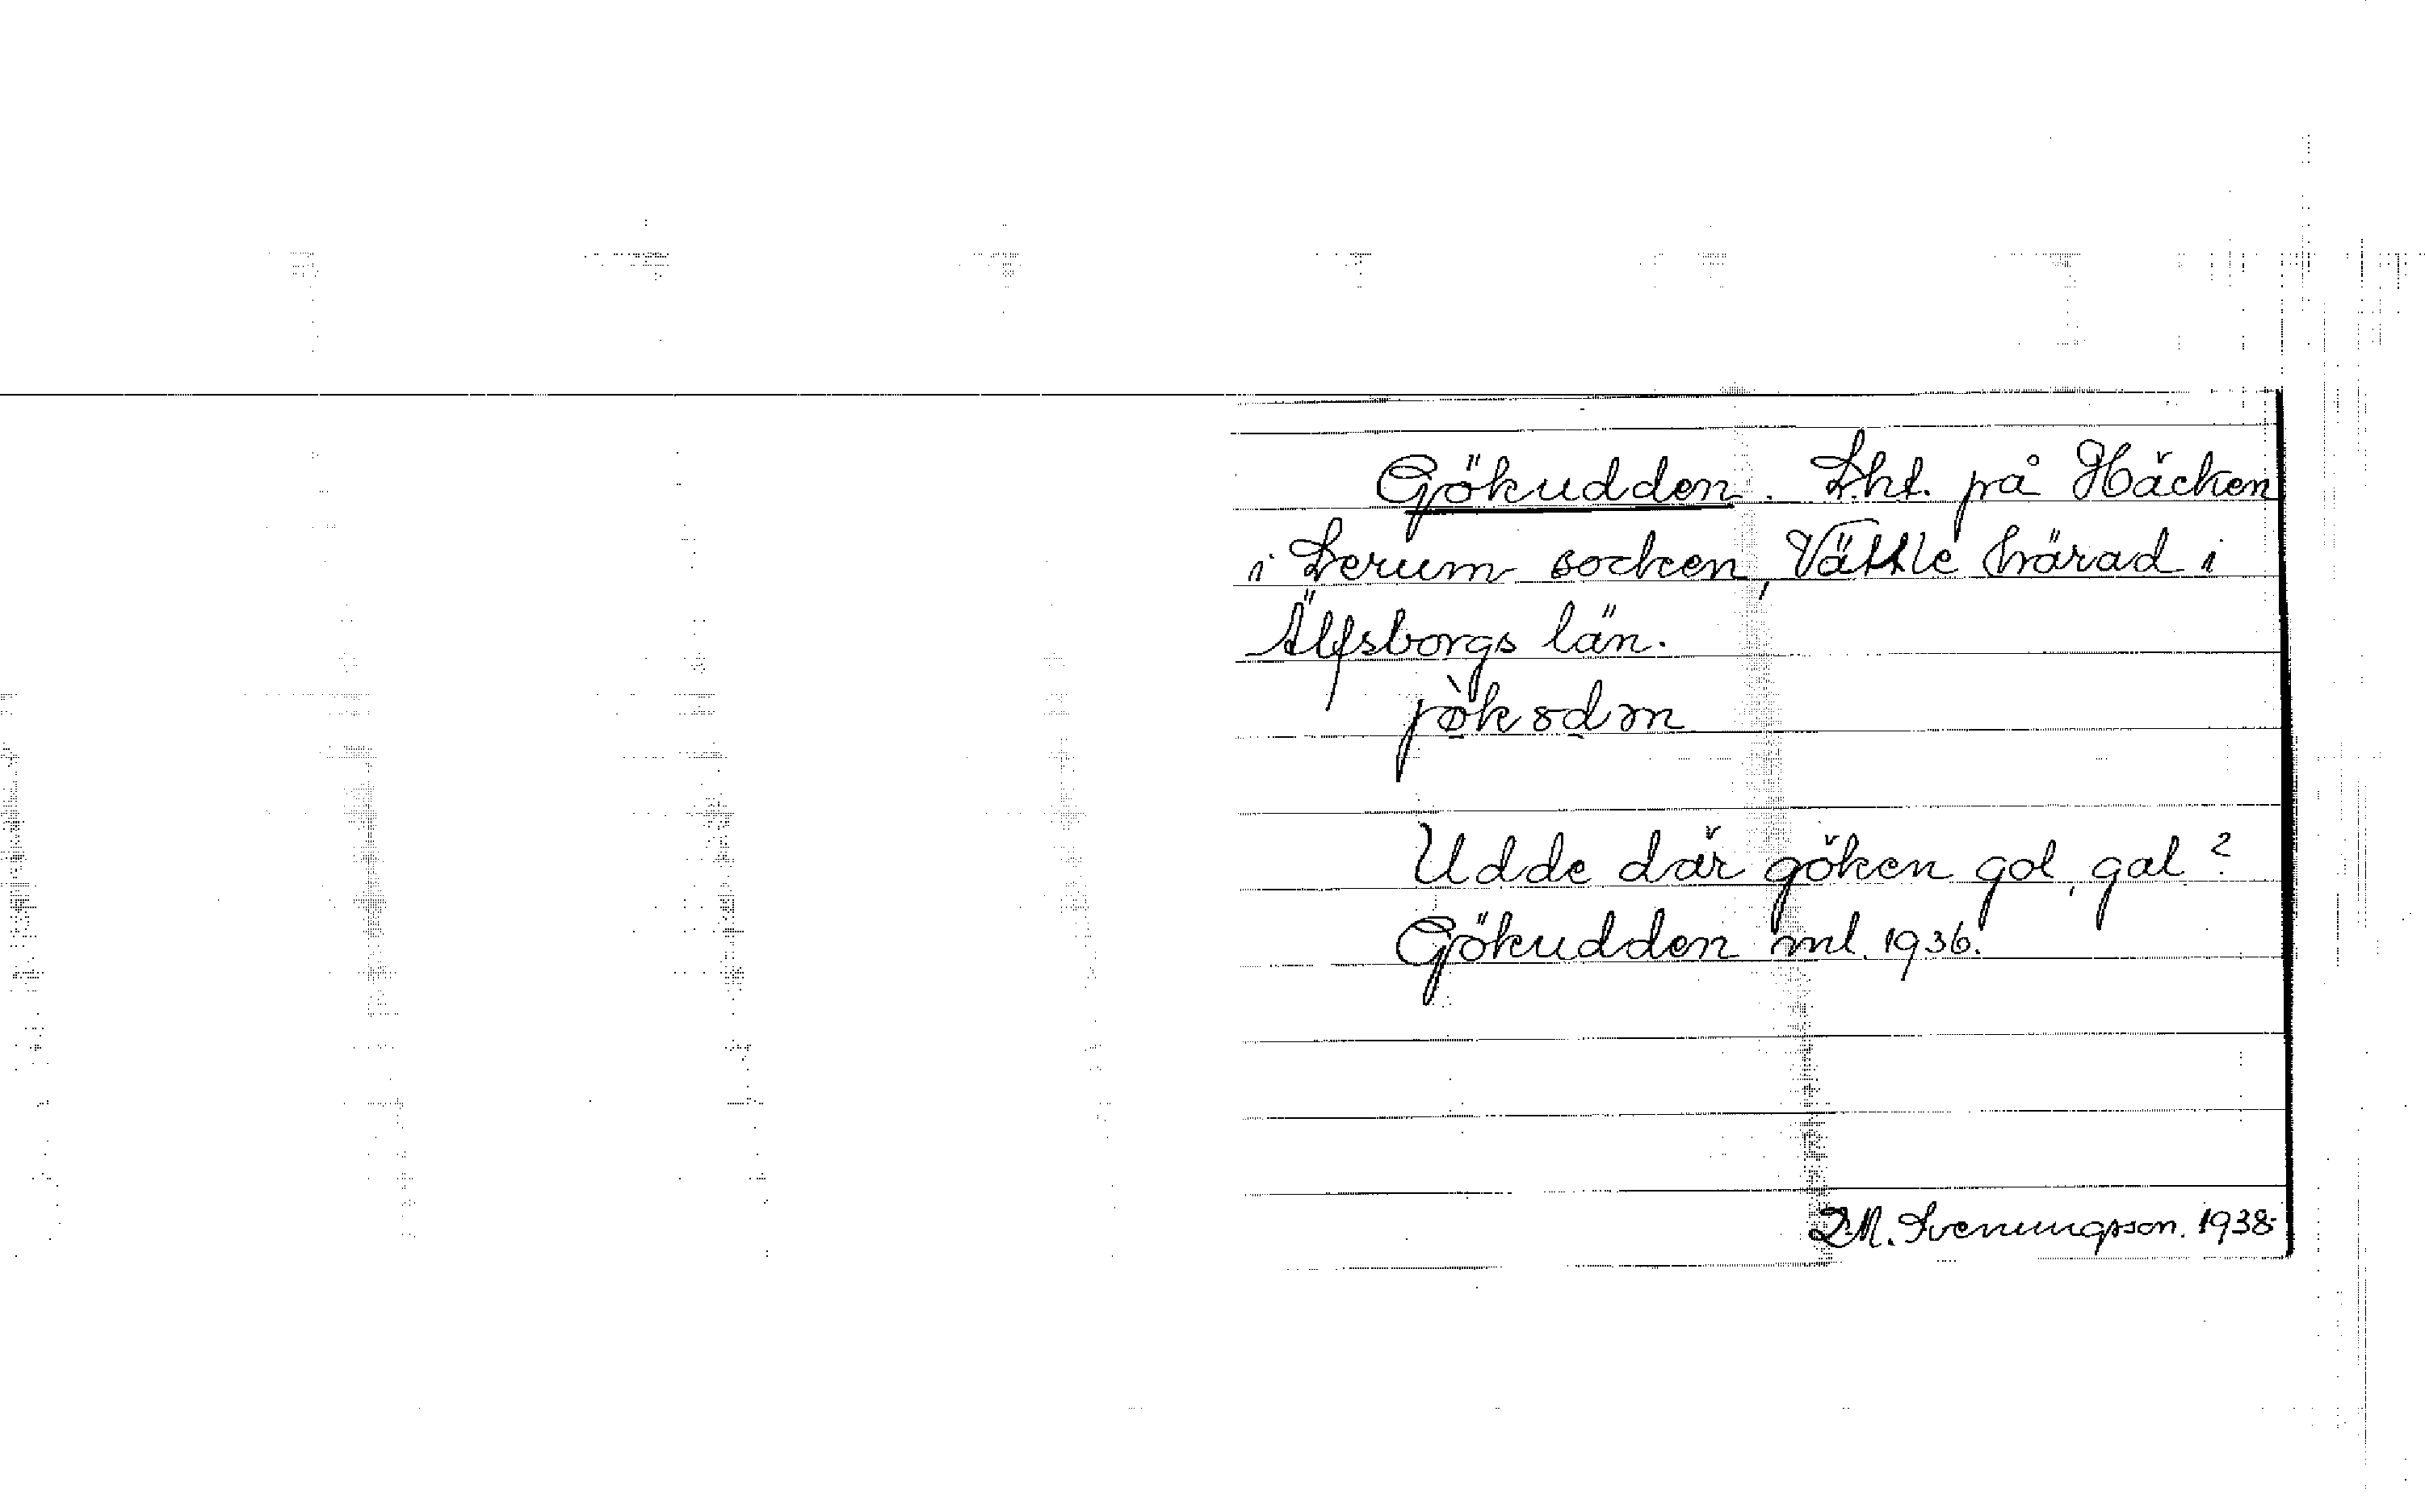 Gökudden. Lht. på Häcken
i Lerum socken, Vättle härad i
Älfsborgs län.
jø̀kɷdɷn
Udde där göken gol, gal?
Gökudden ml. 1936.
D.M. Svenungsson. 1938.